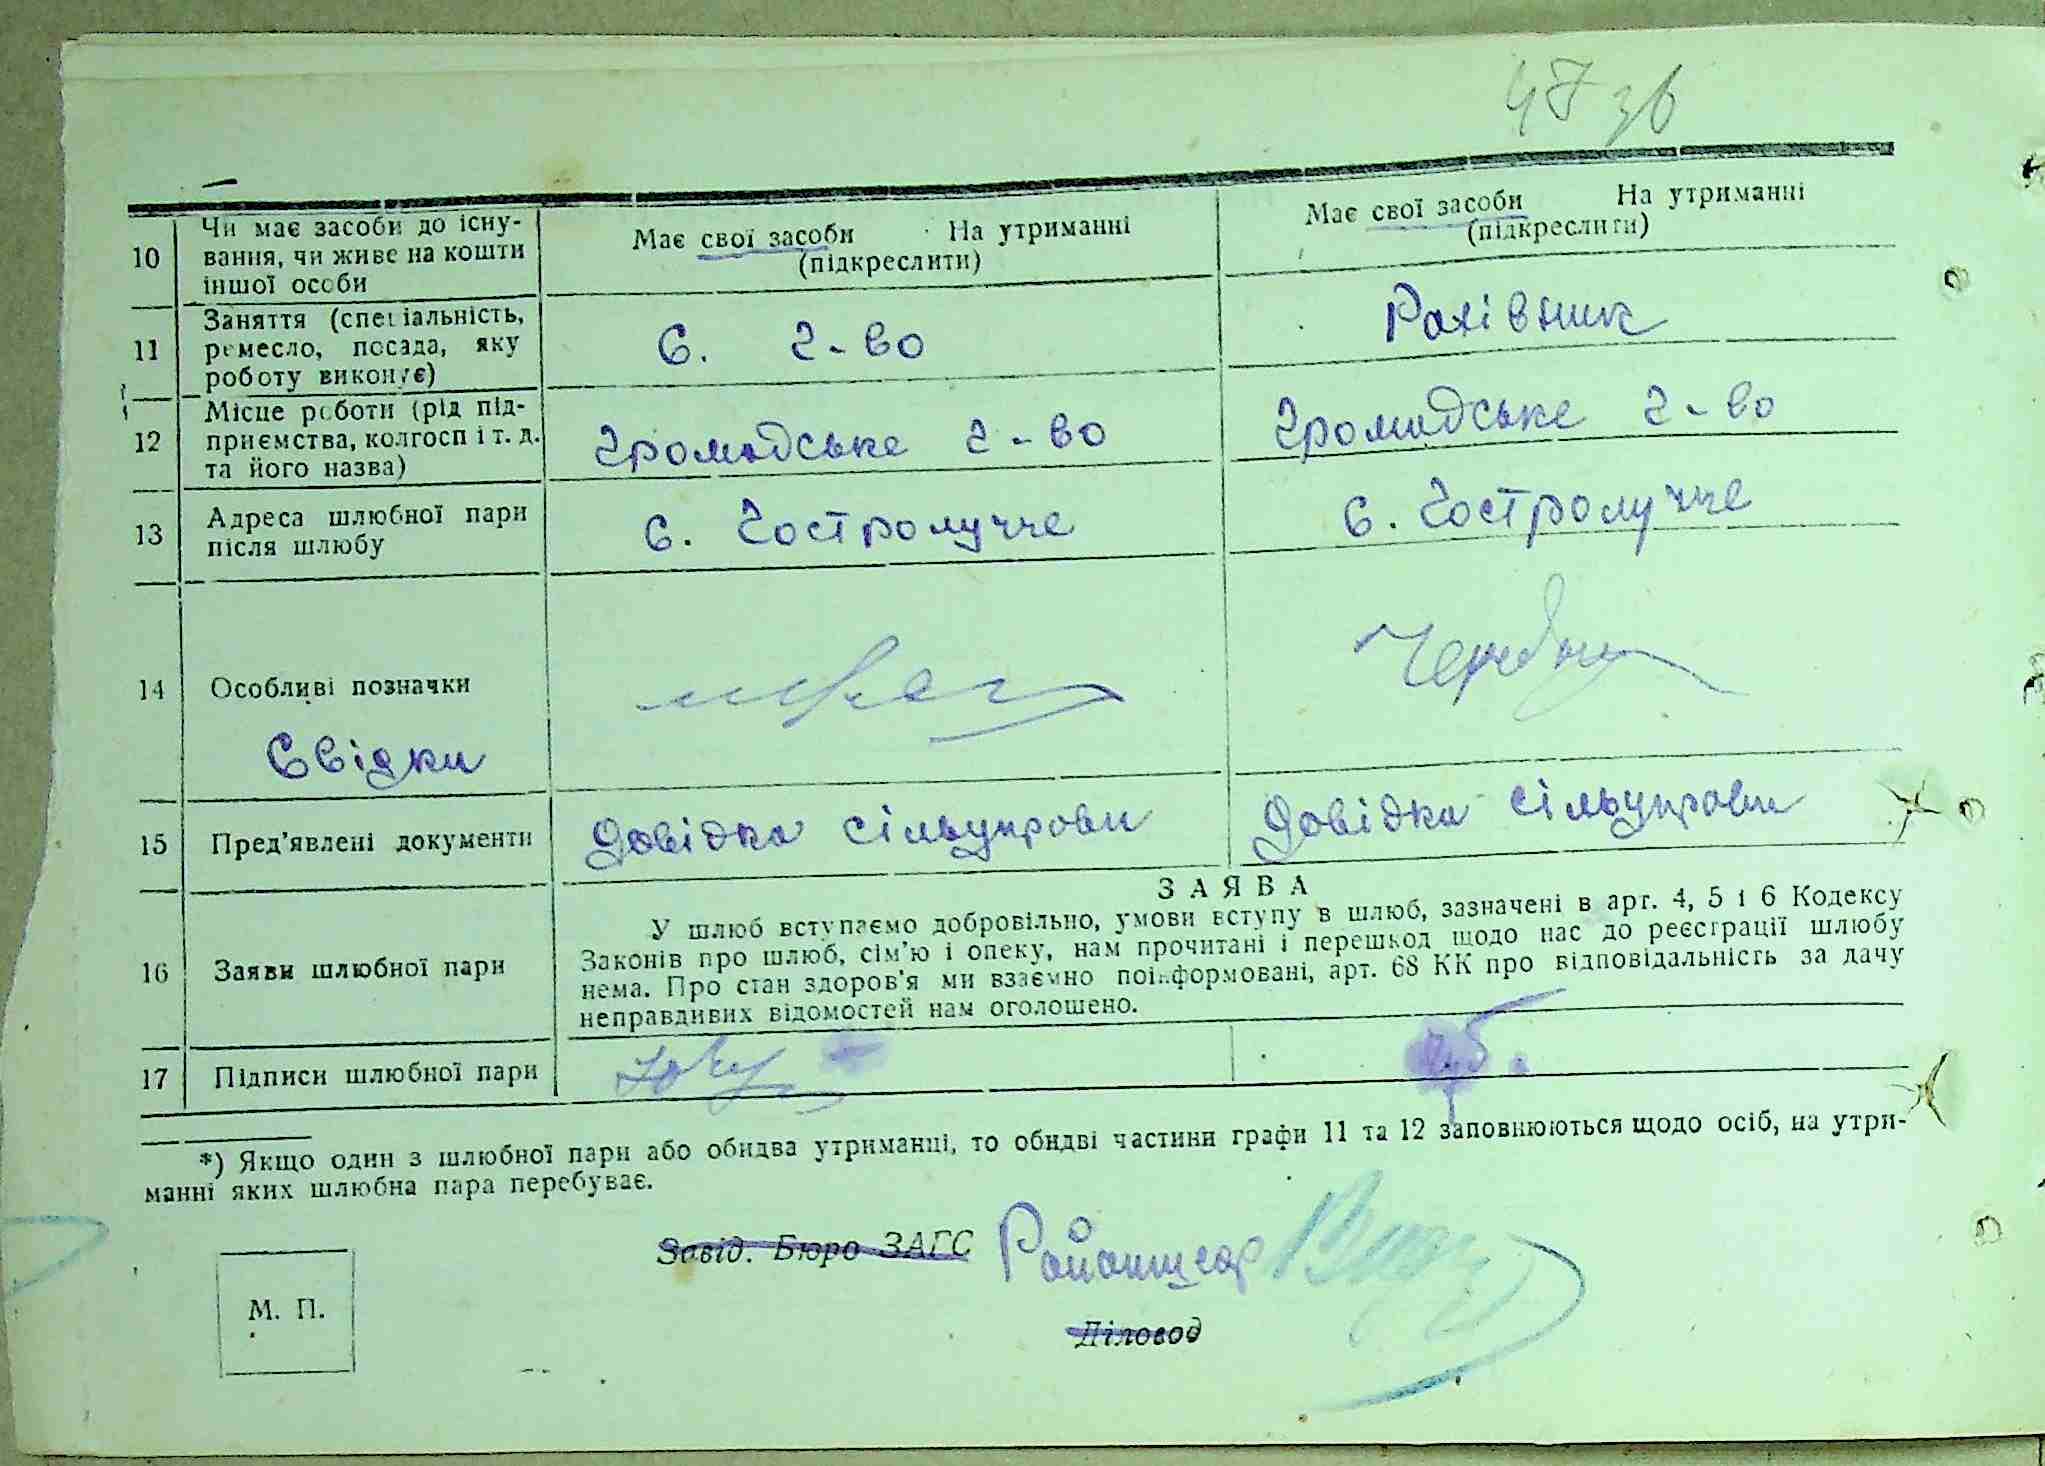 47 зв
10 Чи має засоби до існу-
вання, чи живе на кошти
іншої особи
Має свої засоби На утриманні
(підкреслити)
Має свої засоби На утриманні
(підкреслити)
11 Заняття (спеціальність,
ремесло, посада, яку
роботу виконує)
С. г-во
Рахівник
12 Місце роботи (рід під-
приємства, колгосп і т. д.
та його назва)
Громадське г-во
Громадське г-во
13 Адреса шлюбної пари
після шлюбу
с. Гостролучче
с. Гостролучче
14 Особливі позначки
Свідки
15 Пред'явлені документи
Довідка сільуправи
Довідка сільуправи
16 Заяви шлюбної пари
ЗАЯВА
У шлюб вступаємо добровільно, умови вступу в шлюб, зазначені в арт. 4, 5 і 6 Кодексу
Законів про шлюб, сім'ю і опеку, нам прочитані і перешкод щодо нас до реєстрації шлюбу
нема. Про стан здоров'я ми взаємно поінформовані, арт. 68 КК про відповідальність за дачу
неправдивих відомостей нам оголошено.
17 Підписи шлюбної пари
*) Якщо один з шлюбної пари або обидва утриманці, то обидві частини графи 11 та 12 заповнюються щодо осіб, на утри-
манні яких шлюбна пара перебуває.
Завід. Бюро ЗАГС
Діловод
М. П.